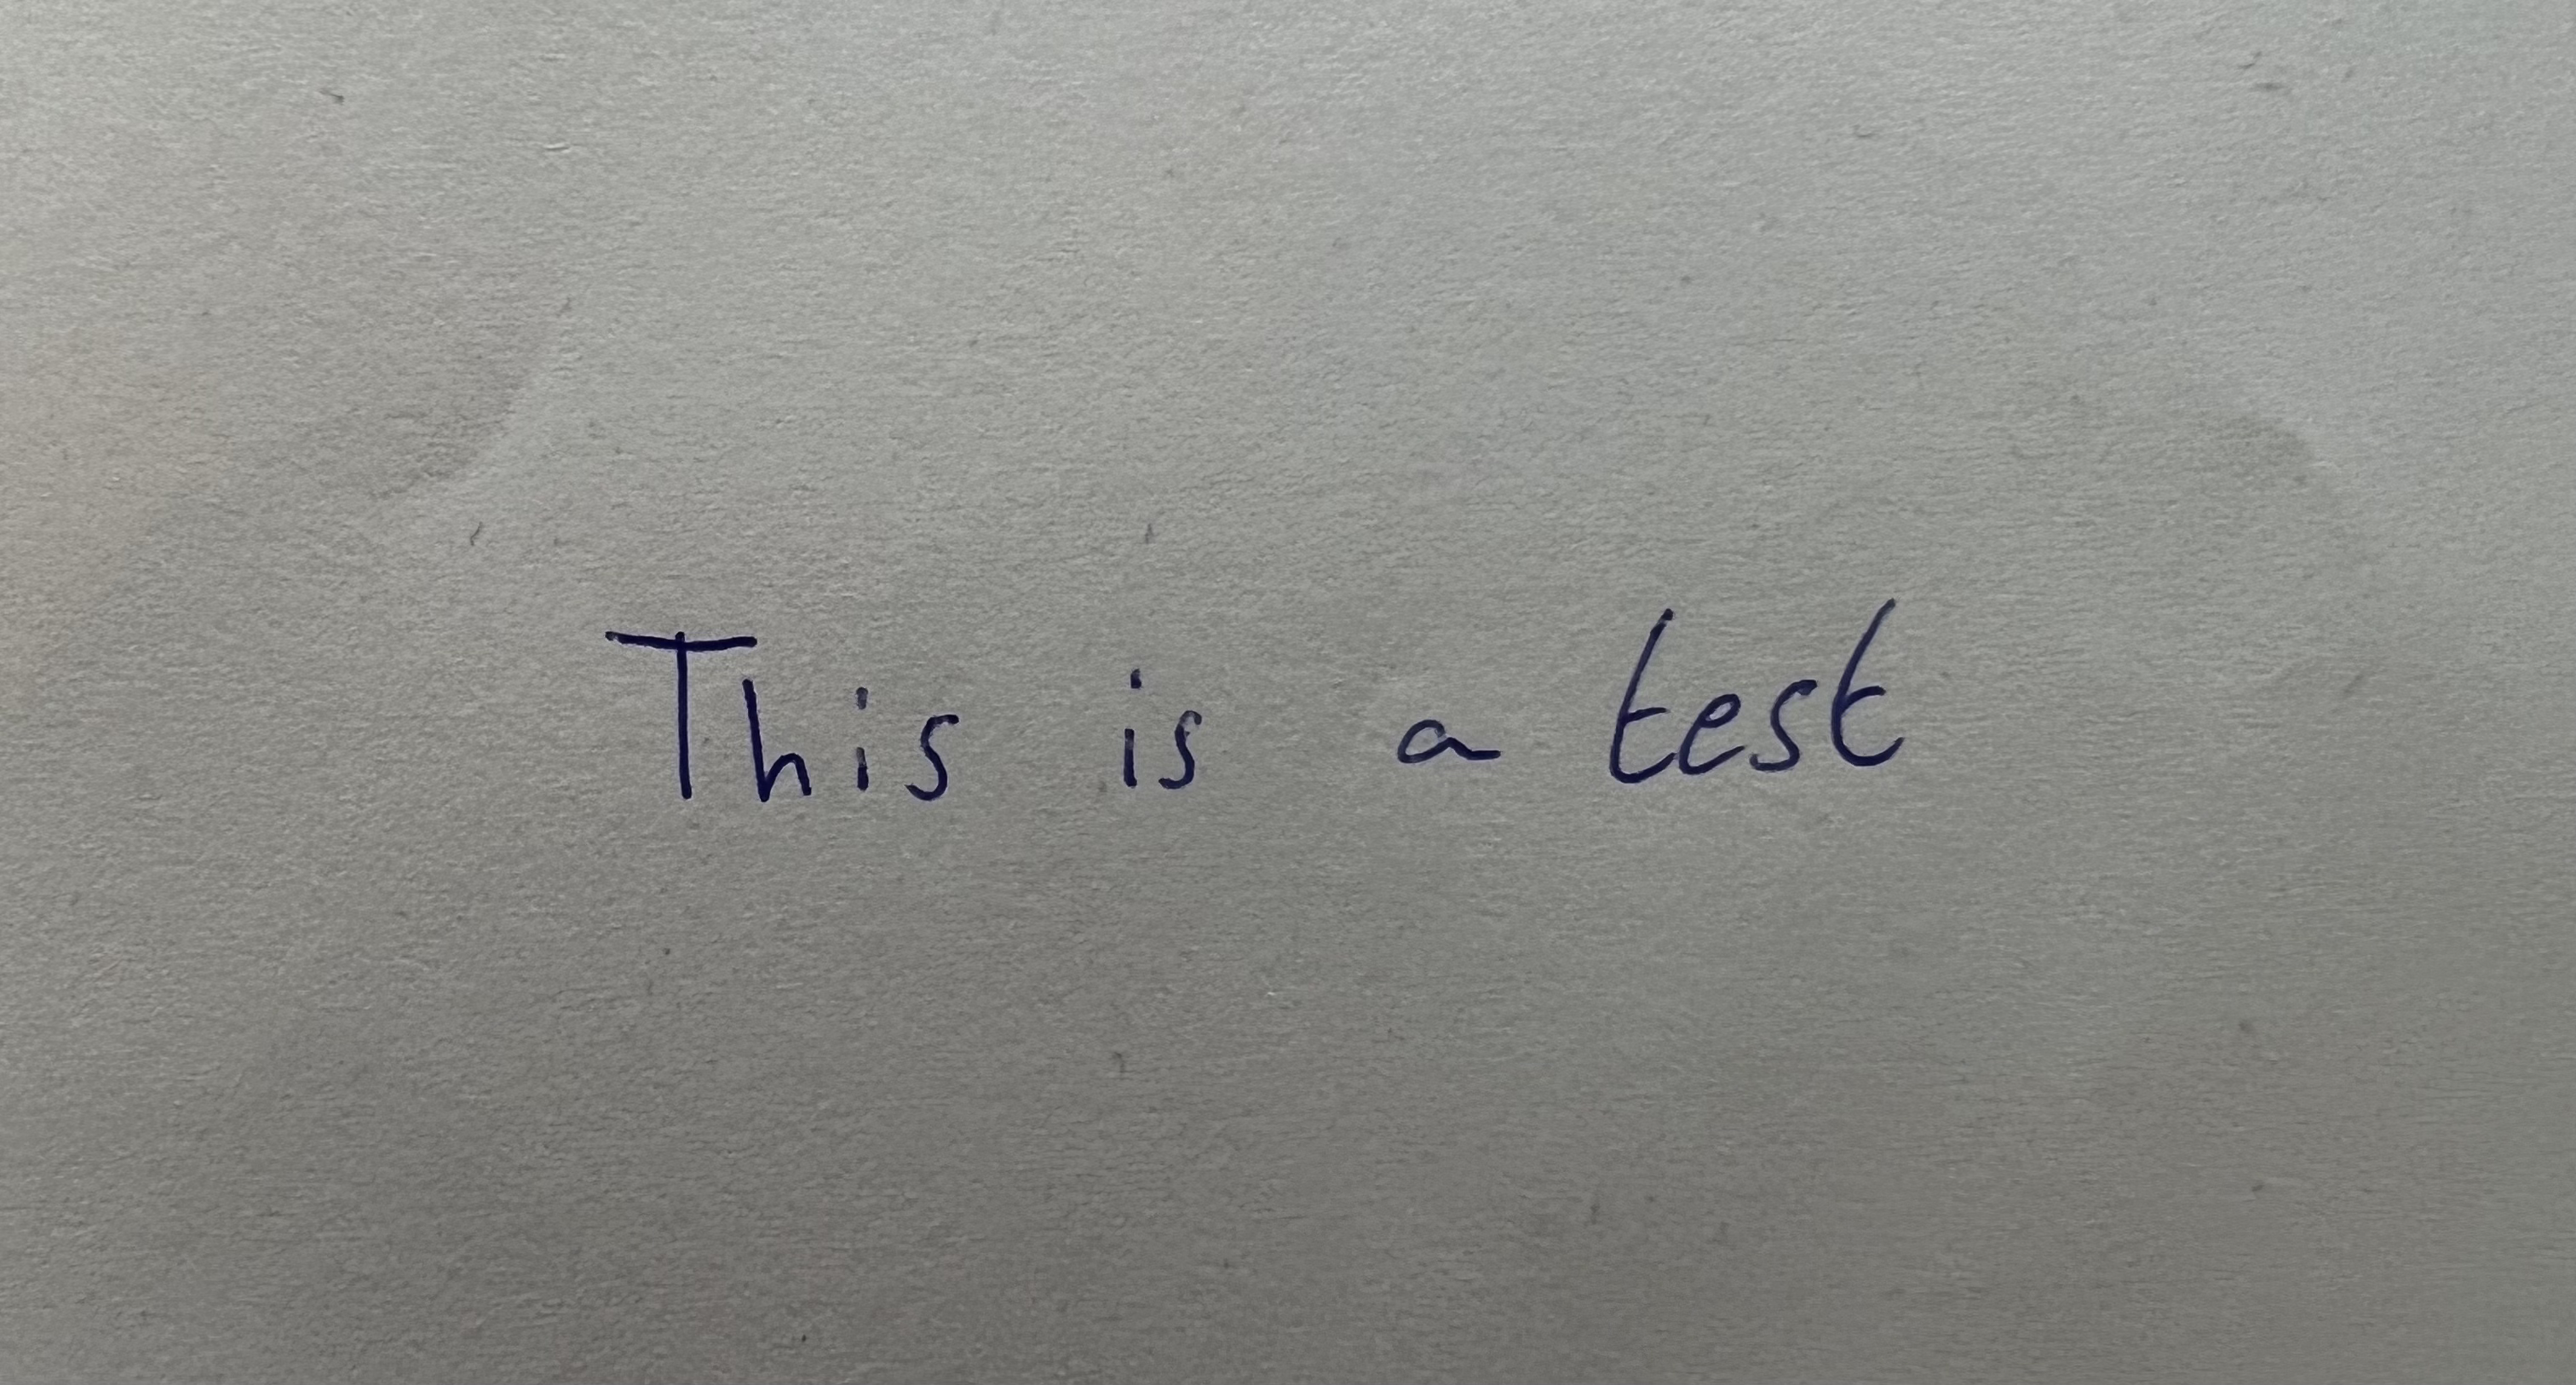 This is a test